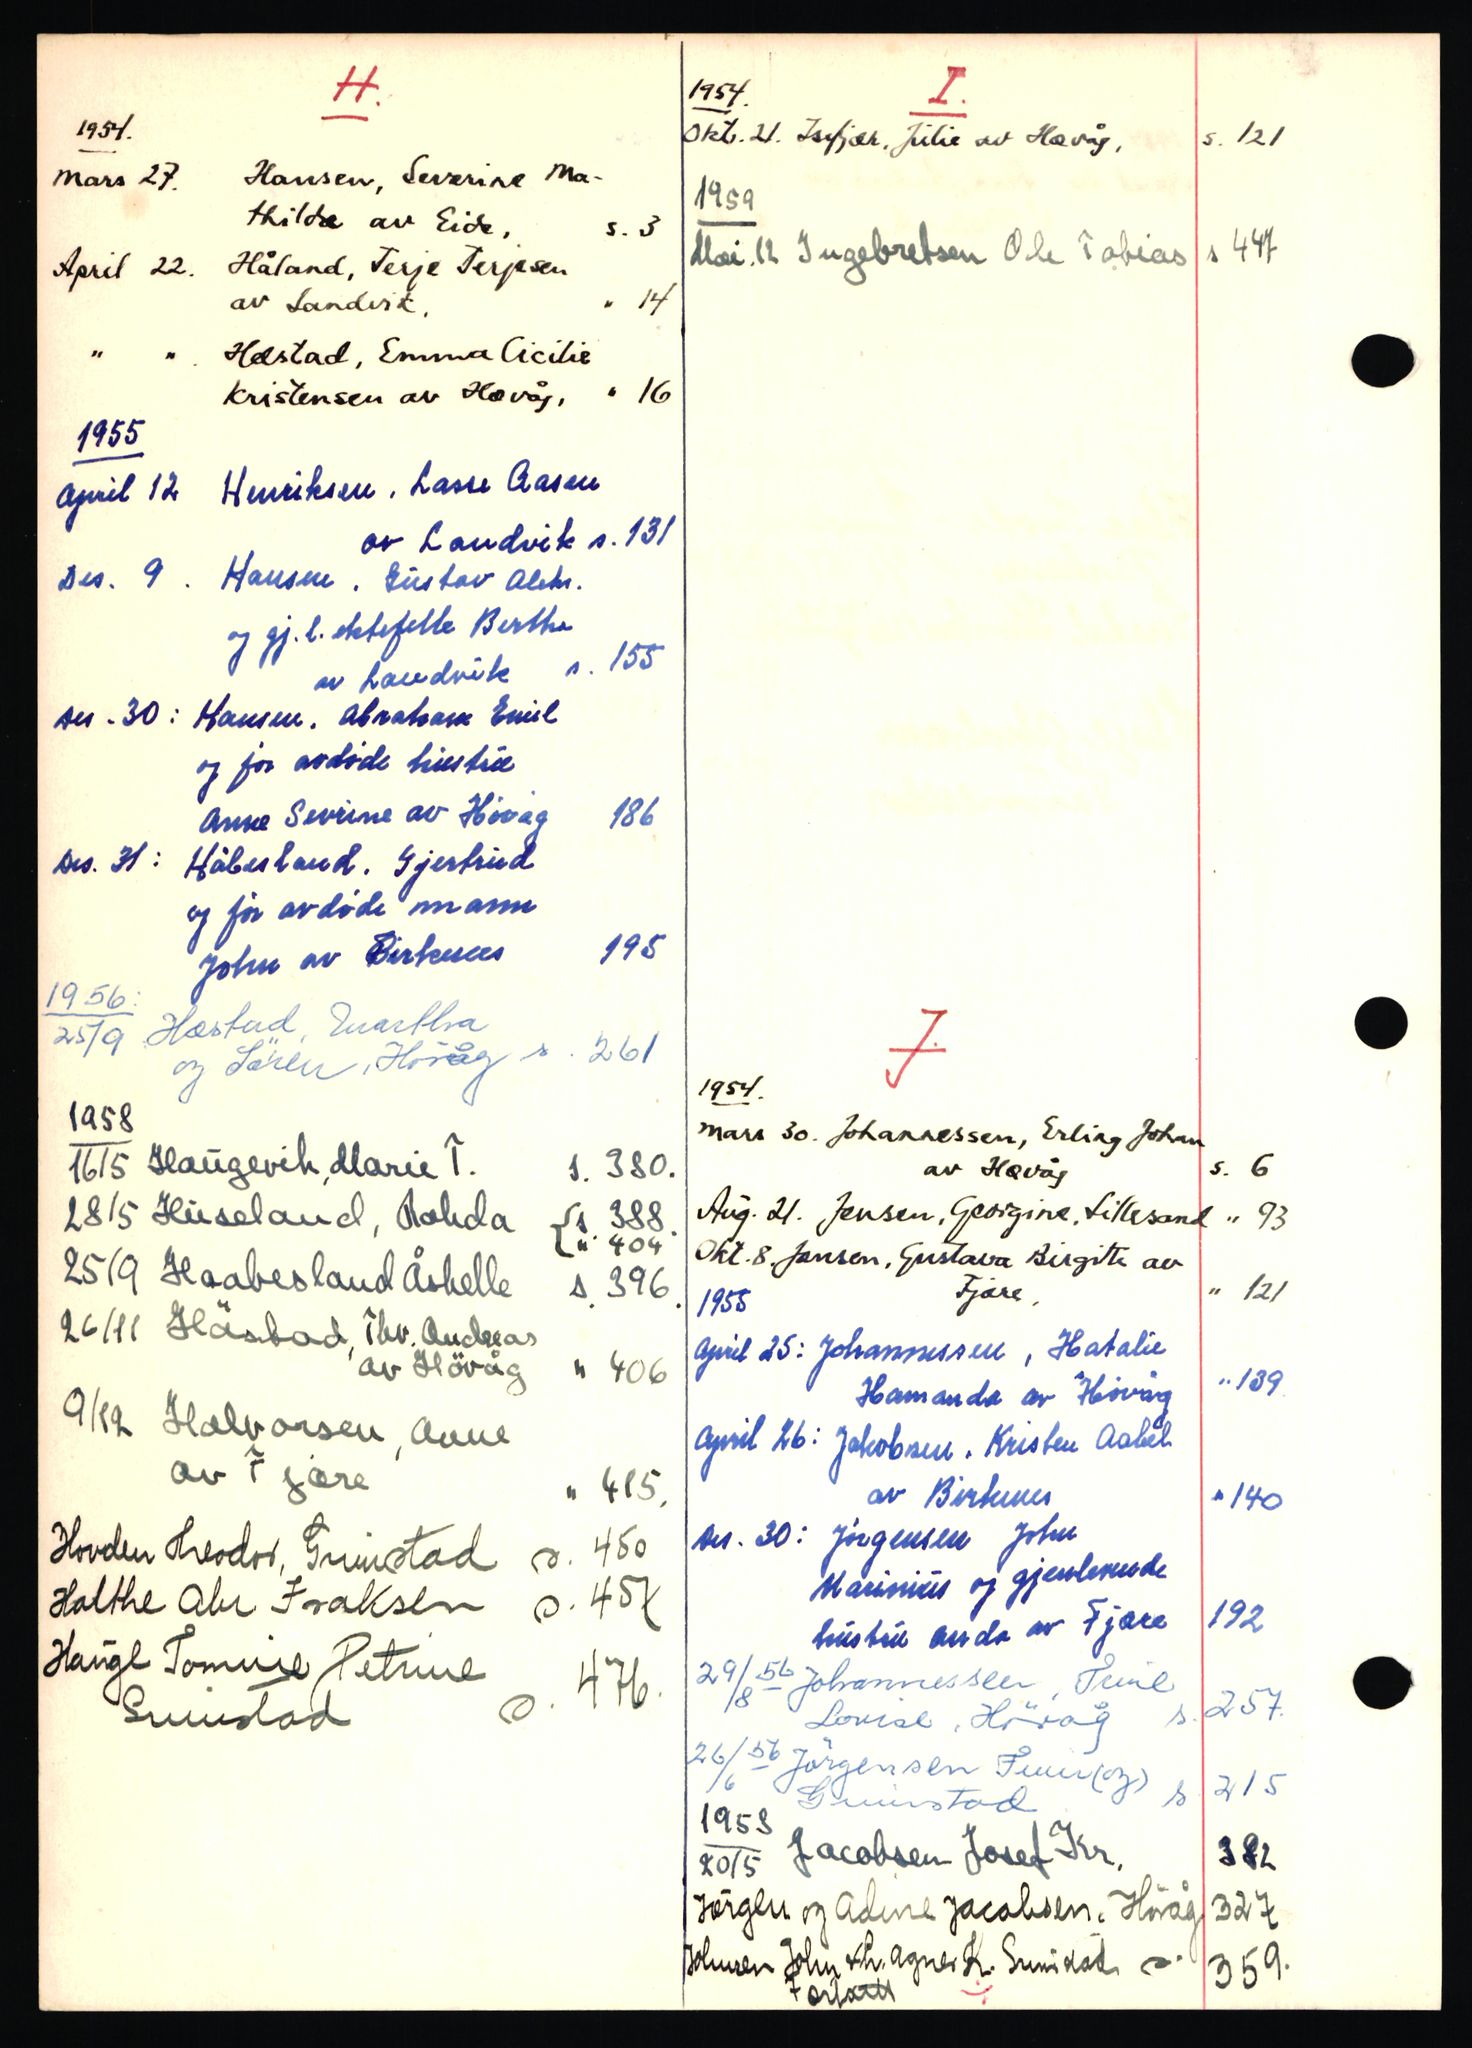 H.
1954.
Mars 27. Hansen, Severine Ma-
thilde av Eide, s. 3
April 22. Håland, Terje Terjesen
av Landvik, " 14
" " . Hæstad, Emma Cicilie
Kristensen av Høvåg, " 16
1955
April 12 Henriksen, Lasse Aasen
av Landvik s. 131
Des. 9. Hansen, Gustav Aleks.
og gj.l. ektefelle Bertha
av Landvik s. 155
Des. 30: Hansen, Abraham Emil
og for avdøde hustru
Anne Sevrine av Høvåg 186
Des. 31: Håbesland, Gjertrud
og for avdøde mann
John av Birkenes 195
1956:
25/9 Hæstad, Martha
og Sören, Høvåg s. 261
1958
16/5 Haugevik, Marie T. s. 380.
28/5 Huseland, Rohda {s. 388.
" 404
25/9 Haabesland Åshelle s. 396.
26/11 Hästad, Thv. Andreas
av Hövåg " 406
9/12 Halvorsen, Anne
av Fjære " 415.
Hovden Theodor, Grimstad s. 450
Holthe Abr Isaksen s. 457
Haugl Tomine Petrine
Grimstad s. 476.
I.
1954.
Okt. 21. Isefjær, Julie av Høvåg, s. 121
1959
Mai. 12 Ingebretsen Ole Tobias s 447
J.
1954.
Mars 30. Johannessen, Erling Johan
av Høvåg s. 6
Aug. 21. Jensen, Georgine, Lillesand " 93
Okt. 8. Jensen, Gustava Birgite av
Fjære, " 121
1955
April 25: Johannessen, Hatalie
Hamanda av Høvåg " 139
April 26: Jakobsen, Kristen Aabel
av Birkenes " 140
Des. 30: Jørgensen John
Marinius og gjenlevende
hustru Anda av Fjære 192
29/8 56 Johannessen,
Lovise, Hövåg s. 257.
26/6 56 Jörgensen Finn (og)
Grimstad s. 215
1958
20/5 Jacobsen Josef Kr. 382
Jørgen og Adine Jacobsen, Høvåg 327
Johnsen John & h. Agnes K. Grimstad s. 359.
Forts